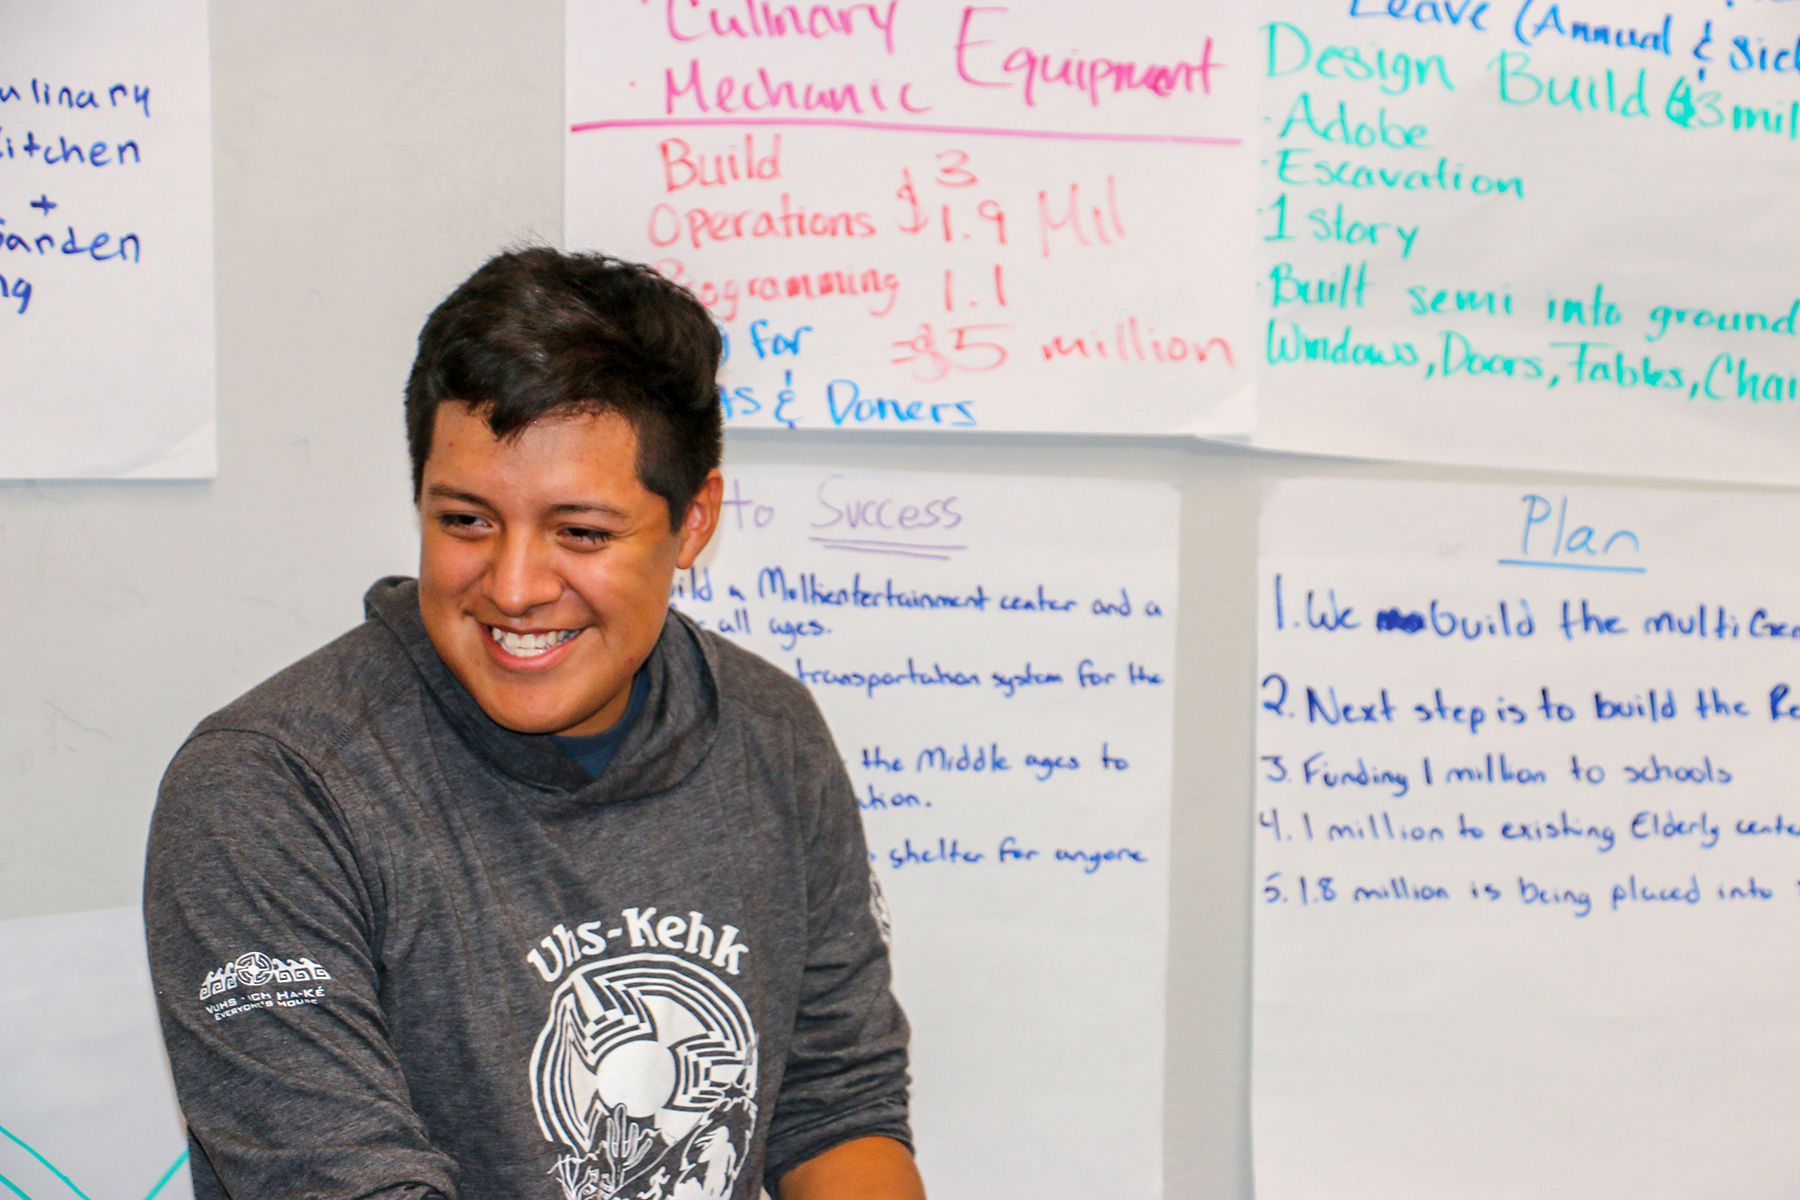 Kitchen
+
Culinary
Equipment
· Mechanic
Build $ 3
Operations 1.9 Mil
1.1
= $5 million
for
& Doners
Leave (Annual &
Design Build
· Adobe
· Escavation
· 1 story
· Built semi into ground
Windows, Doors, Tables,
to Success
a Multientertainment center and a
all ages.
transportation system for the
the Middle ages to
shelter for anyone
Plan
1. We build the multi
2. Next step is to build the
3. Funding 1 million to schools
4. 1 million to existing Elderly
5. 1.8 million is being placed into
Uhs-Kehk
HA-KÉ
EVERYONE'S HOUSE